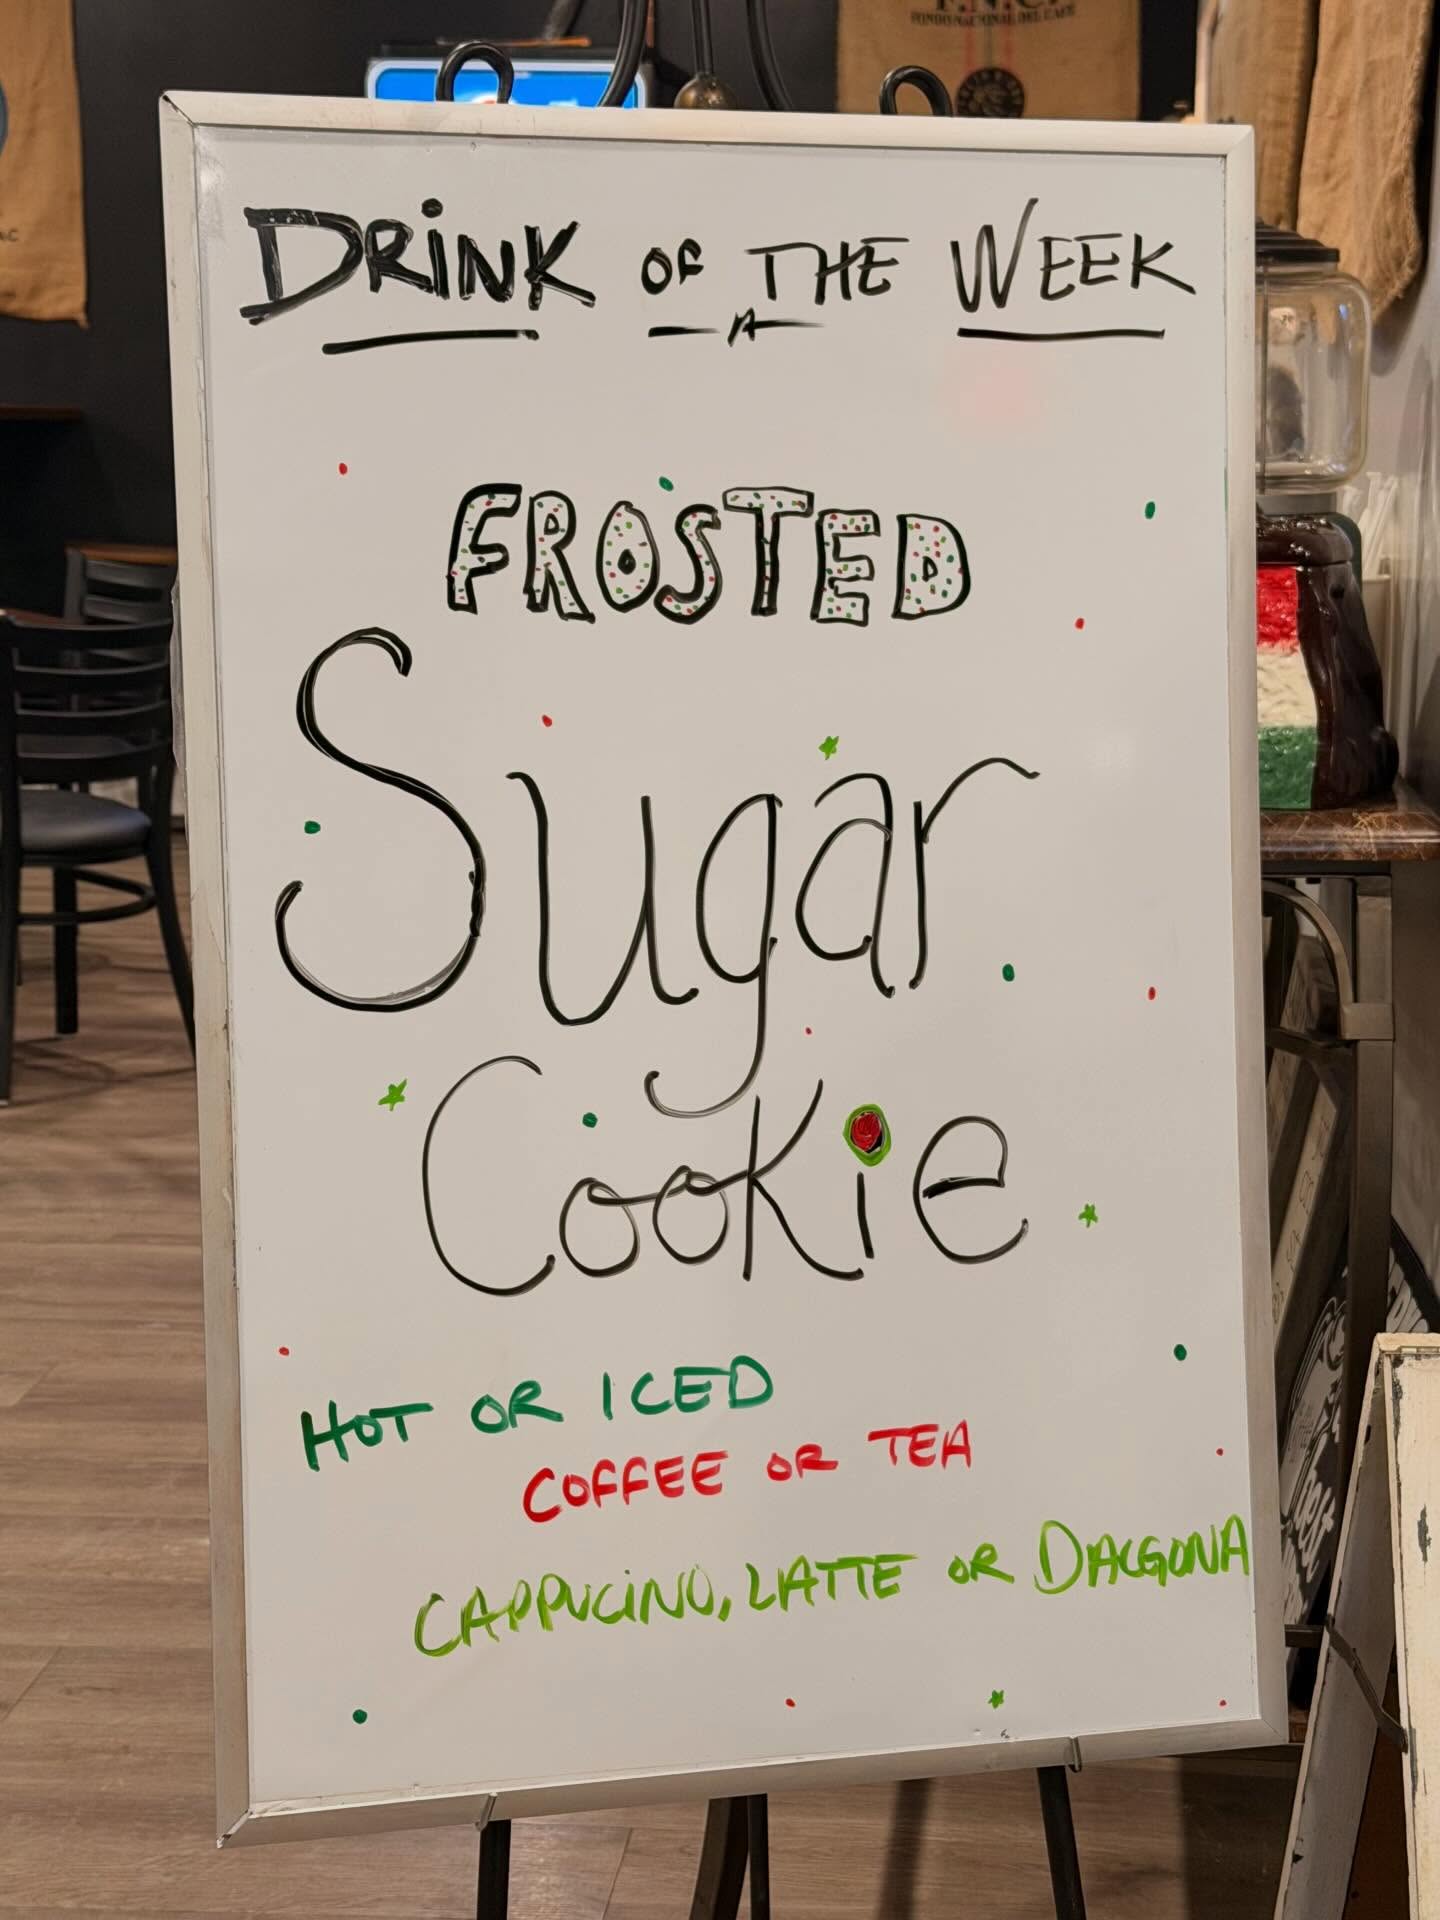 F.N.C.
FONDO NACIONAL DEL CAFE
DRiNK OF THE WEEK
FROSTED
Sugar
Cookie
HOT OR ICED
COFFEE OR TEA
CAPPUCiNO, LATTE OR DALGONA